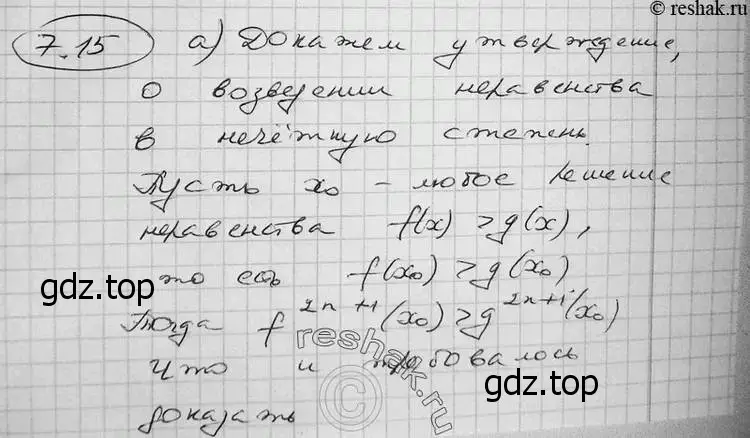 © reshak.ru
7.15 а) Докажем утверждение,
о возведении неравенства
в нечётную степень.
Пусть x₀ – любое решение
неравенства f(x) > g(x),
то есть f(x₀) > g(x₀)
gdz.top gdz.top
Тогда f²ⁿ⁺¹(x₀) > g²ⁿ⁺¹(x₀)
что и требовалось
reshak.ru
gdz.top gdz.top
доказать